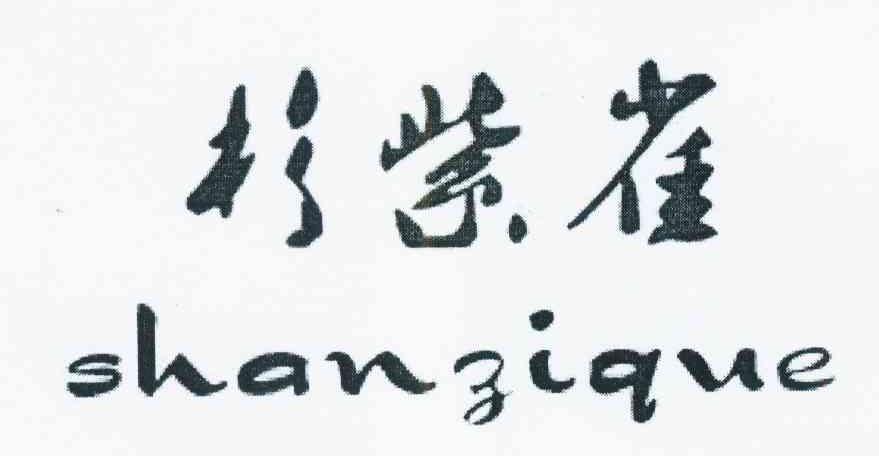 杉紫雀
shanzique